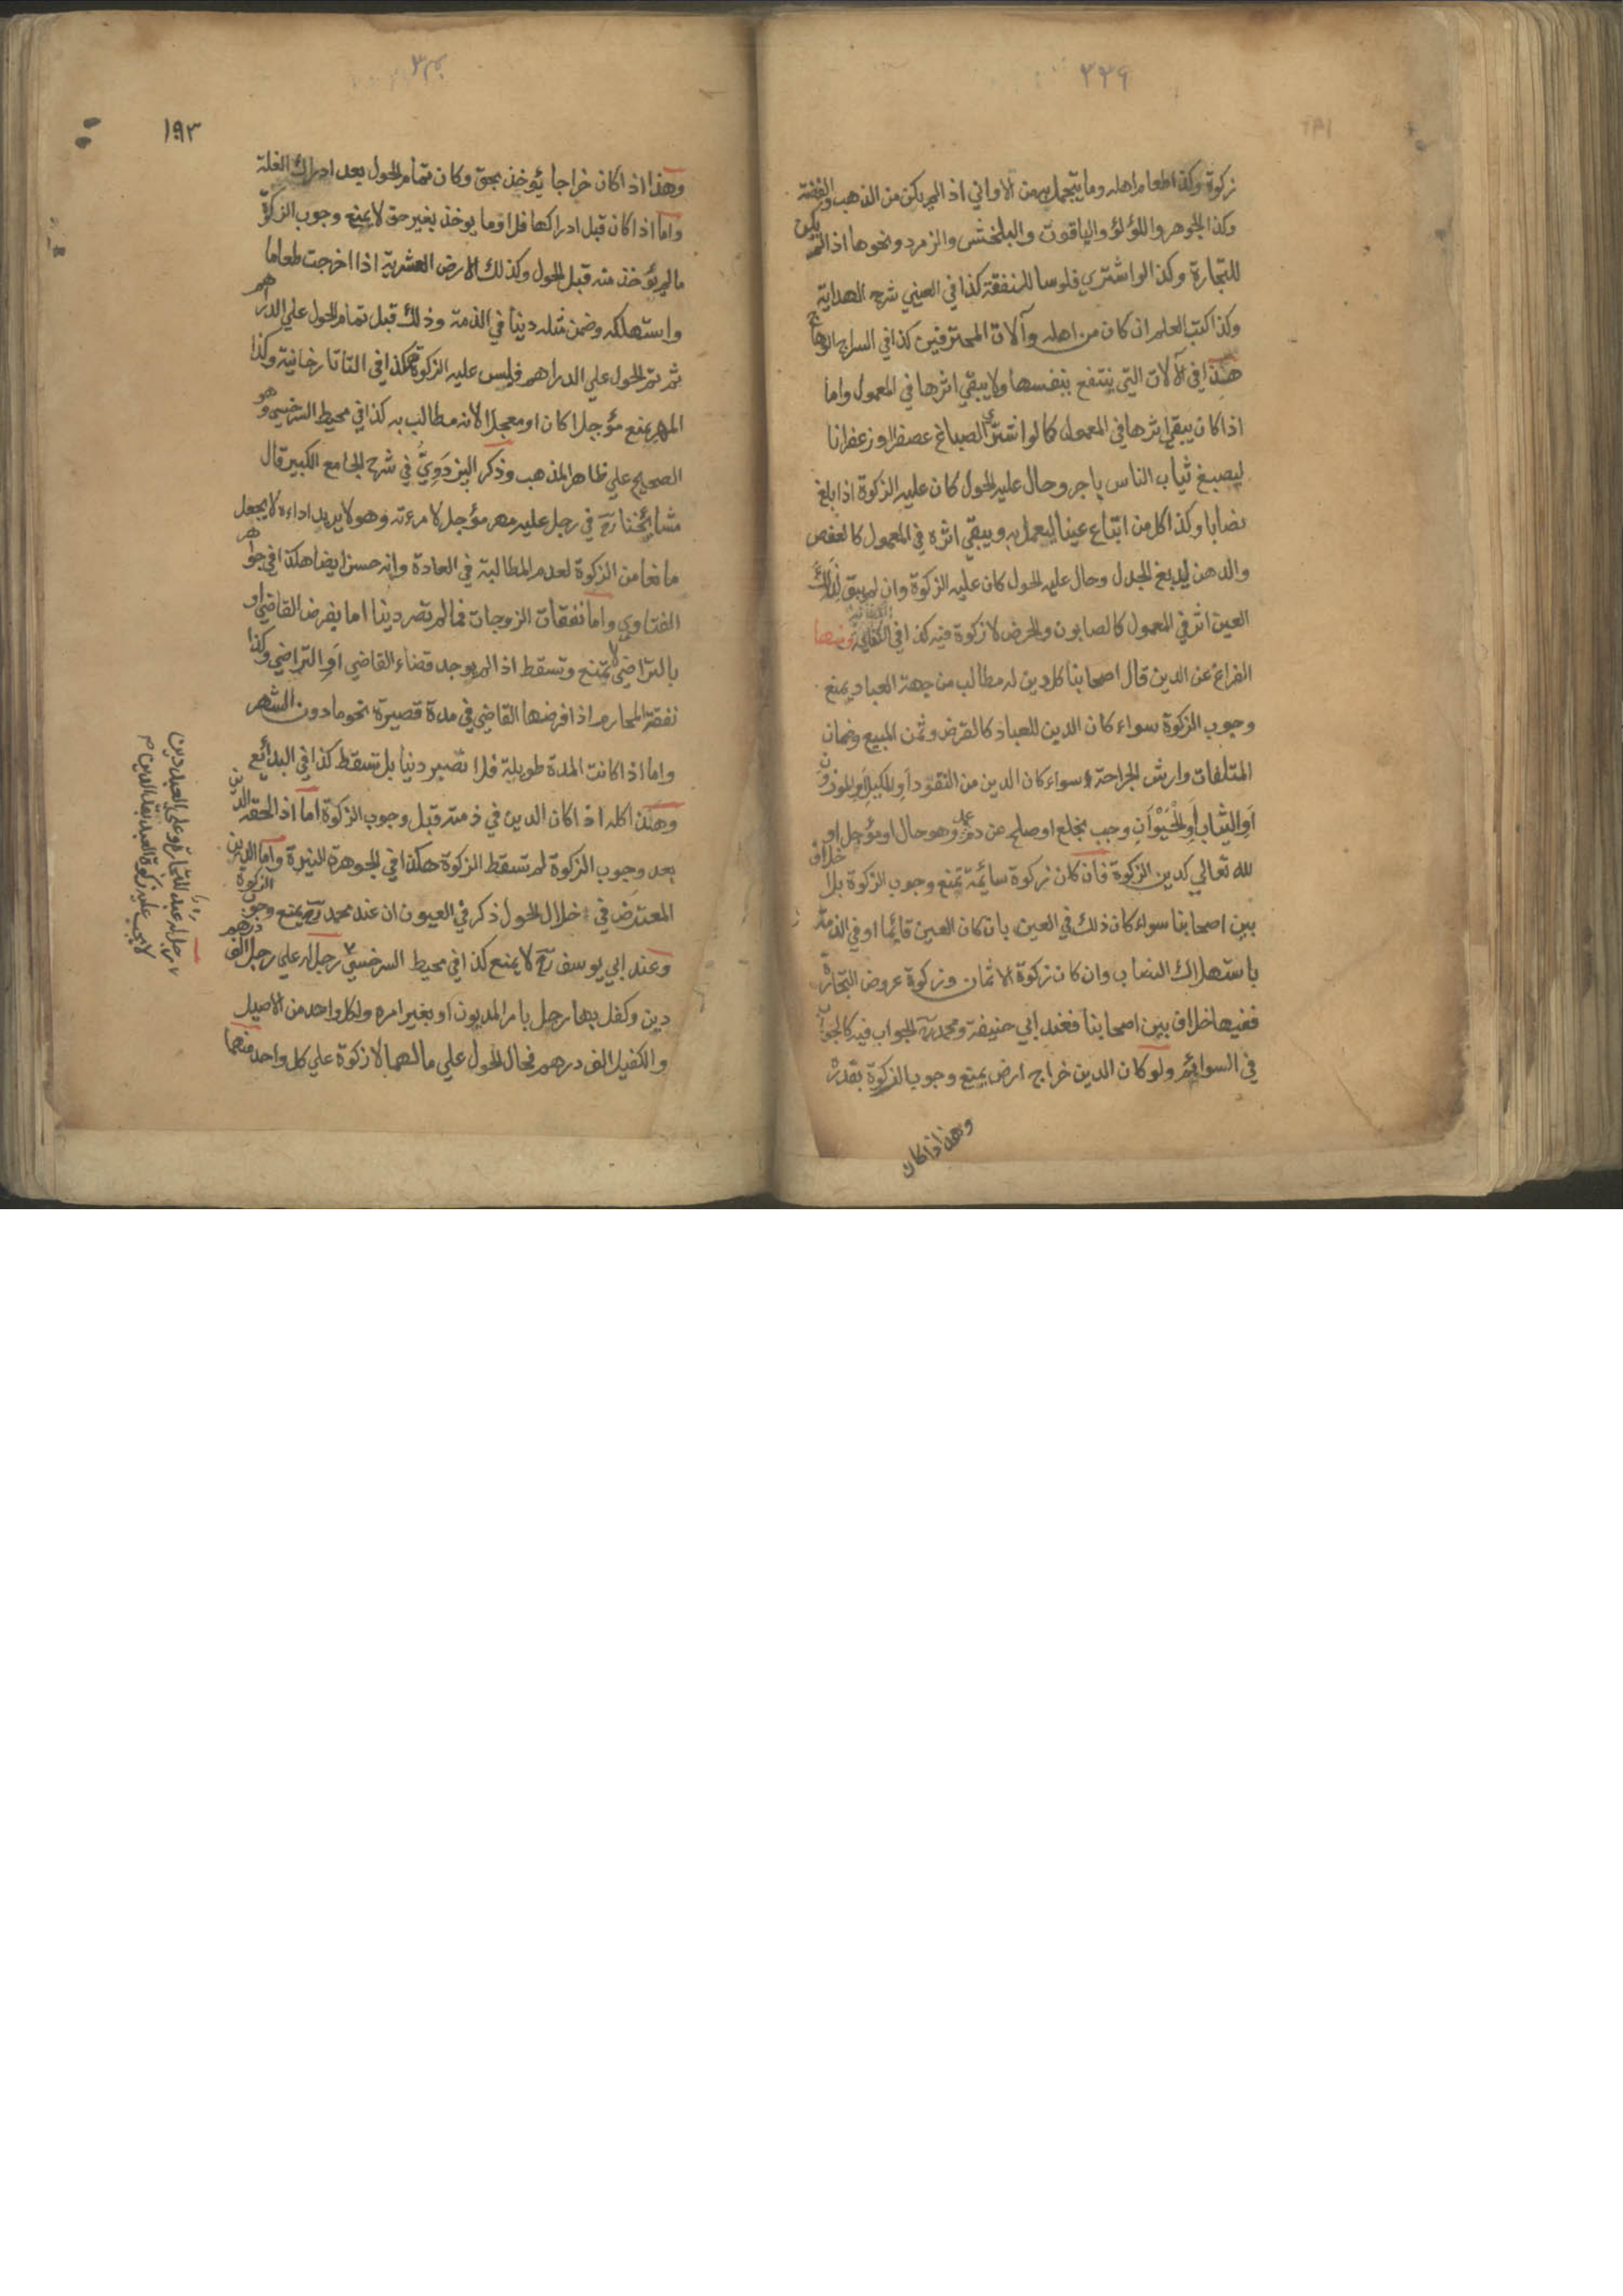 ٣٣٩
زكوة وكذا طعام اهله وما يتجمل به من الاواني اذا لم يكن من الذهب والفضة
وكذا الجوهر واللؤلؤ والياقوت والبلخش والزمرد ونحوها اذا لم يكن
للتجارة وكذا لو اشتري فلوسا للنفقة كذا في العيني شرح الهداية
وكذا كتب العلم ان كان من اهله وآلات المحترفين كذا في السراج الوهاج
هذا في الآلات التي ينتفع بنفسها ولا يبقي اثرها في المعمول واما
اذا كان يبقي اثرها في المعمول كما لو اشتري الصباغ عصفرا او زعفرانا
ليصبغ ثياب الناس باجر وحال عليه الحول كان عليه الزكوة اذا بلغ
نصابا وكذا كل من ابتاع عينا ليعمل به ويبقي اثره في المعمول كالعفص
والدهن ليدبغ الجلد وحال عليه الحول كان عليه الزكوة وان لم يبق لذلك
العين اثر في المعمول كالصابون والحرض لا زكوة فيه كذا في الكفاية ومنها
الفراغ عن الدين قال اصحابنا كل دين له مطالب من جهة العباد يمنع
وجوب الزكوة سواء كان الدين للعباد كالقرض وثمن المبيع وضمان
المتلفات وارش الجراحة سواء كان الدين من النقود او المكيل او الموزون
او الثياب او الحيوان وجب بخلع او صلح عن دم عمد وهو حال او مؤجل او
لله تعالي كدين الزكوة فان كان زكوة سائمة تمنع وجوب الزكوة بلا خلاف
بين اصحابنا سواء كان ذلك في العين بان كان العين قائما او في الذمة
باستهلاك النصاب وان كان زكوة الاثمان وزكوة عروض التجارة
ففيها خلاف بين اصحابنا فعند ابي حنيفة ومحمد رح الجواب فيه كالجواب
في السوائم ولو كان الدين خراج ارض يمنع وجوب الزكوة بقدره
وهذا اذا كان
١٩٣
وهذا اذا كان خراجا يؤخذ بحق وكان تمام الحول بعد ادراك الغلة
واما اذا كان قبل ادراكها فلا وما يوخذ بغير حق لا يمنع وجوب الزكوة
ما لم يؤخذ منه قبل الحول وكذلك الارض العشرية اذا اخرجت طعاما
واستهلكه وضمن مثله دينا في الذمة وذلك قبل تمام الحول علي الدراهم
ثم تم الحول علي الدراهم فليس عليه الزكوة هكذا في التاتارخانية وكذا
المهر يمنع مؤجلا كان او معجلا لانه مطالب به كذا في محيط السرخسي وهو
الصحيح علي ظاهر المذهب وذكر البزدوي في شرح الجامع الكبير قال
مشايخنا رح في رجل عليه مهر مؤجل لامرءته وهو لا يريد اداءه لا يجعل
مانعا من الزكوة لعدم المطالبة في العادة وانه حسن ايضا هكذا في جواهر
الفتاوي واما نفقات الزوجات فما لم تصر دينا اما بفرض القاضي او
بالتراضي لا تمنع وتسقط اذا لم يوجد قضاء القاضي او التراضي وكذا
نفقة المحارم اذا فرضها القاضي في مدة قصيرة نحو ما دون الشهر
واما اذا كانت المدة طويلة فلا تصير دينا بل تسقط كذا في البدائع
وهذا كله اذا كان الدين في ذمته قبل وجوب الزكوة اما اذا لحقه الدين
بعد وجوب الزكوة لم تسقط الزكوة هكذا في الجوهرة النيرة واما الدين
المعترض في خلال الحول ذكر في العيون ان عند محمد رح يمنع وجوب الزكوة
وعند ابي يوسف رح لا يمنع كذا في محيط السرخسي رجل له علي رجل الف درهم
دين وكفل بها رجل بامر المديون او بغير امره ولكل واحد من الاصيل
والكفيل الف درهم فحال الحول علي مالهما لا زكوة علي كل واحد منهما
رجل له عبد للتجارة وعلي العبد دين
لا يجب عليه زكوة العبد بقدر الدين